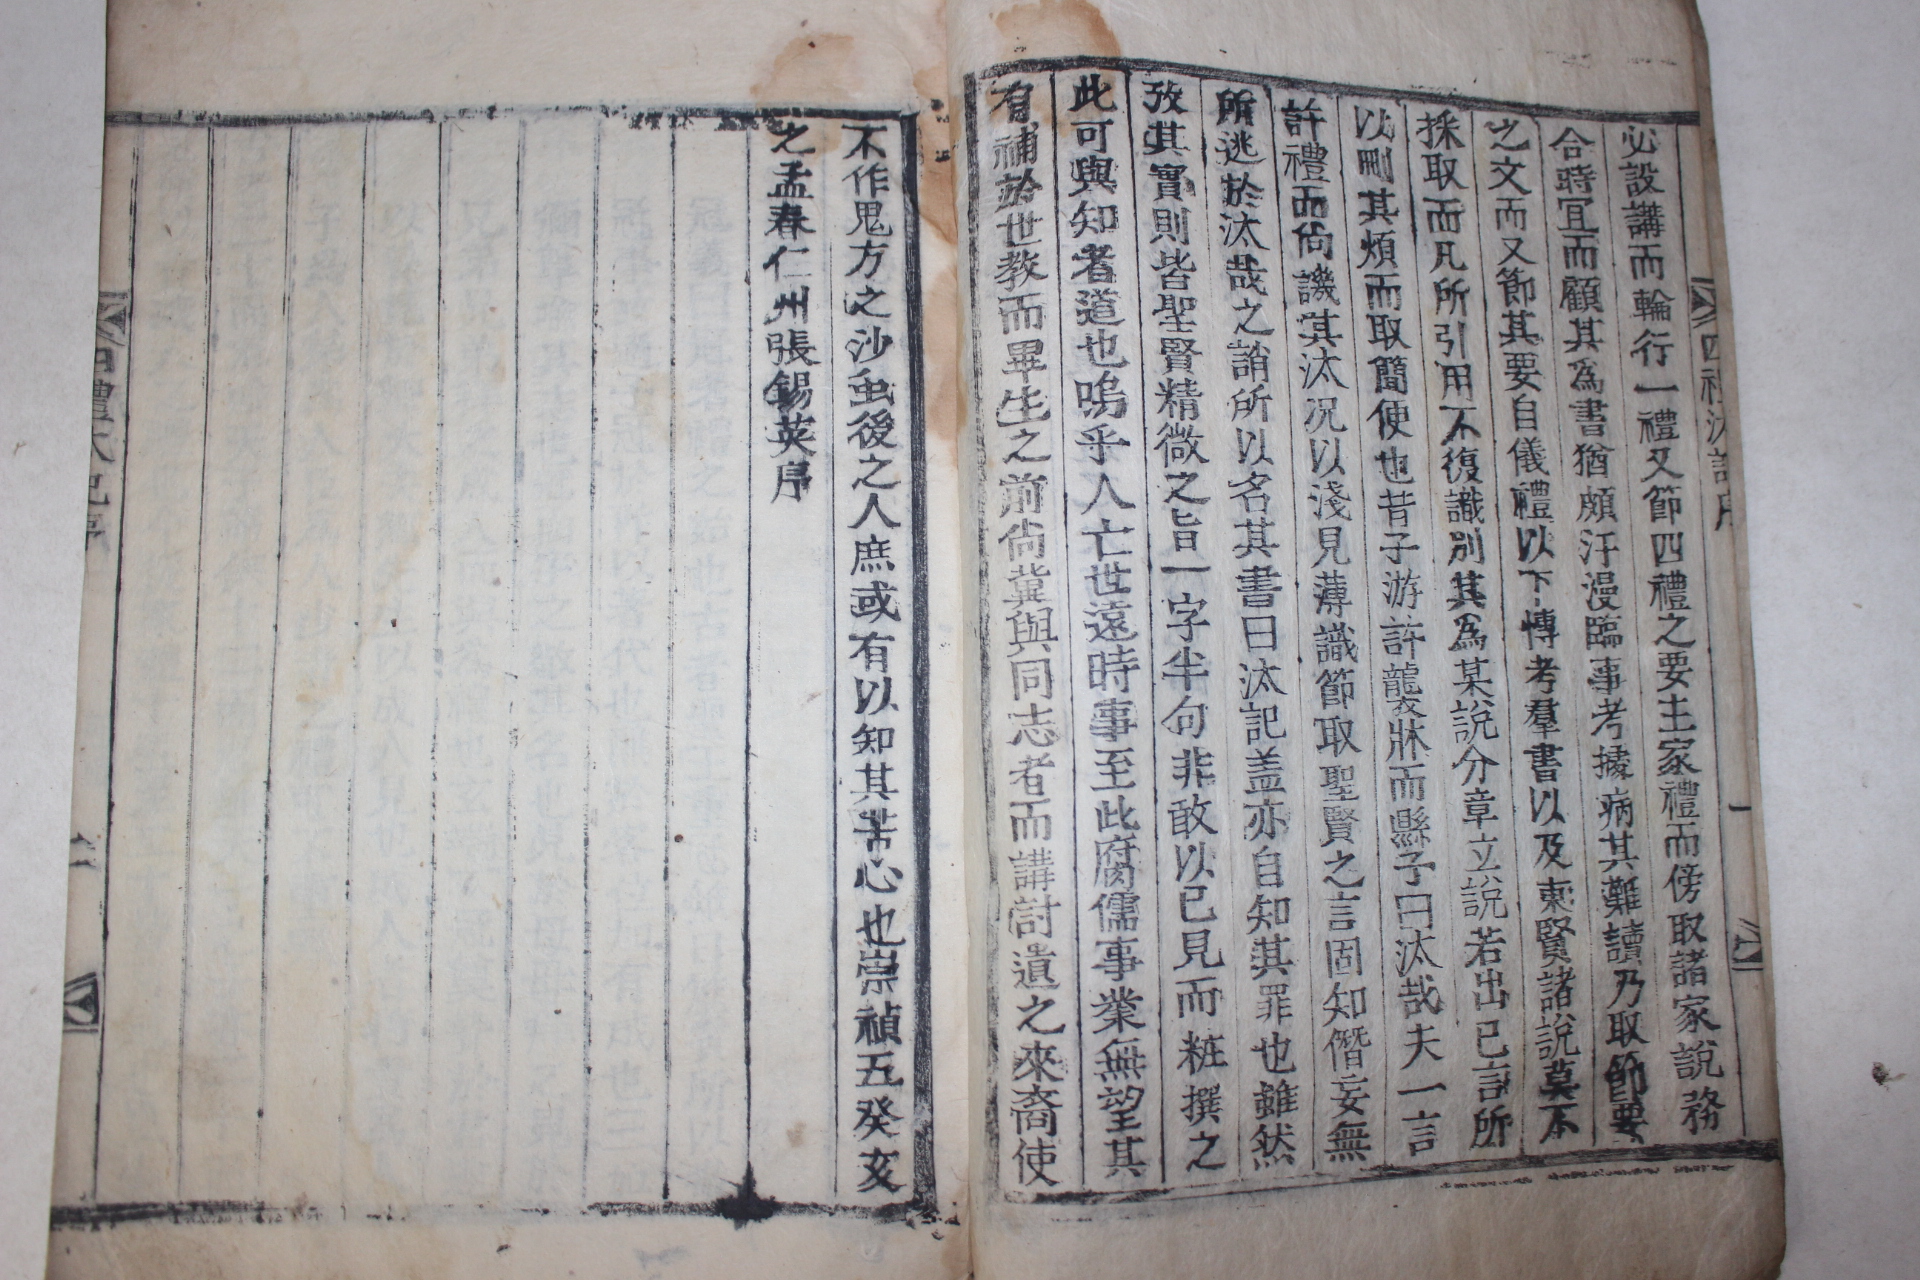 四禮汰記序
一
必設講而輪行一禮又節四禮之要主家禮而傍取諸家說務
合時冝而顧其爲書猶頗汗漫臨事考據病其難讀乃取節要
之文而又節其要自儀禮以下愽考羣書以及東賢諸說莫不
採取而凡所引用不復識別其爲某說分章立說若出已言所
以刪其煩而取簡便也昔子游許襲牀而縣子曰汰哉夫一言
許禮而尙譏其汰况以淺見薄識節取聖賢之言固知僭妄無
所逃於汰哉之誚所以名其書曰汰記盖亦自知其罪也雖然
攷其實則皆聖賢精微之旨一字半句非敢以已見而粧撰之
此可與知者道也嗚乎人亡世遠時事至此腐儒事業無望其
有補於世教而畢生之前尙冀與同志者而講討遺之來裔使
不作鬼方之沙虫後之人庶或有以知其苦心也崇禎五癸亥
之孟春仁州張錫英序
四禮汰記序
二